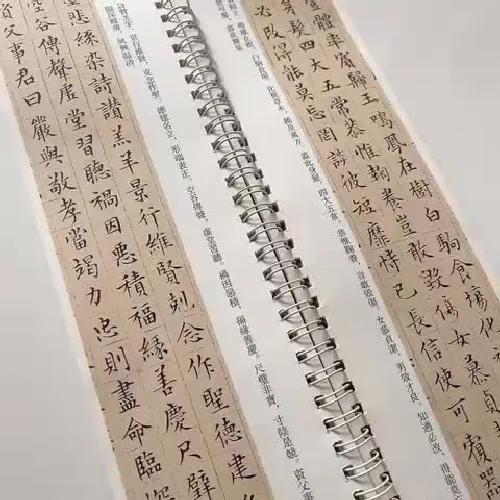 壹體率賓歸王鳴鳳在樹白駒食場
身髮四大五常恭惟鞠養豈敢毀傷女慕貞
必改得能莫忘罔談彼短靡恃己長信使可覆器
歸王。鳴鳳在樹，白駒食場。化被草木，賴及萬方。蓋此身髮，四大五常。恭惟鞠養，豈敢毀傷。女慕貞潔，男效才良。知過必改，得能莫
悲絲染詩讚羔羊景行維賢剋念作聖德建
空谷傳聲虛堂習聽禍因惡積福緣善慶尺璧
資父事君曰嚴與敬孝當竭力忠則盡命臨深
詩讚羔羊。景行維賢，克念作聖。德建名立，形端表正。空谷傳聲，虛堂習聽。禍因惡積，福緣善慶。尺璧非寶，寸陰是競。資父事
臨深履薄，夙興溫凊